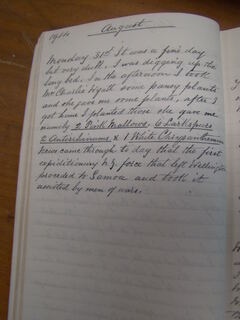 1914 August
Monday 31st It was a fine day
but very dull. I was digging up the
long bed. In the afternoon I took
Mrs Charles Wyatt some pansy plants
and she gave me some plants, after I
got home I planted those she gave me
namely 2 Pink Mallows, 6 Larkspurs
2 Antirrhinums, & 1 White Chrysanthemum
News came through to day that the first
expeditionary N.Z. force that left Wellington
proceeded to Samoa and took it
assisted by men of war.